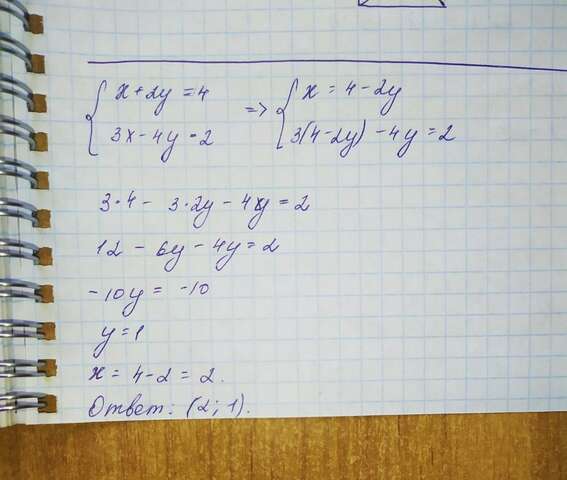 { x + 2y = 4 => { x = 4 - 2y
3x - 4y = 2 3(4-2y) - 4y = 2
3·4 - 3·2y - 4y = 2
12 - 6y - 4y = 2
-10y = -10
y = 1
x = 4-2 = 2.
Ответ: (2; 1).